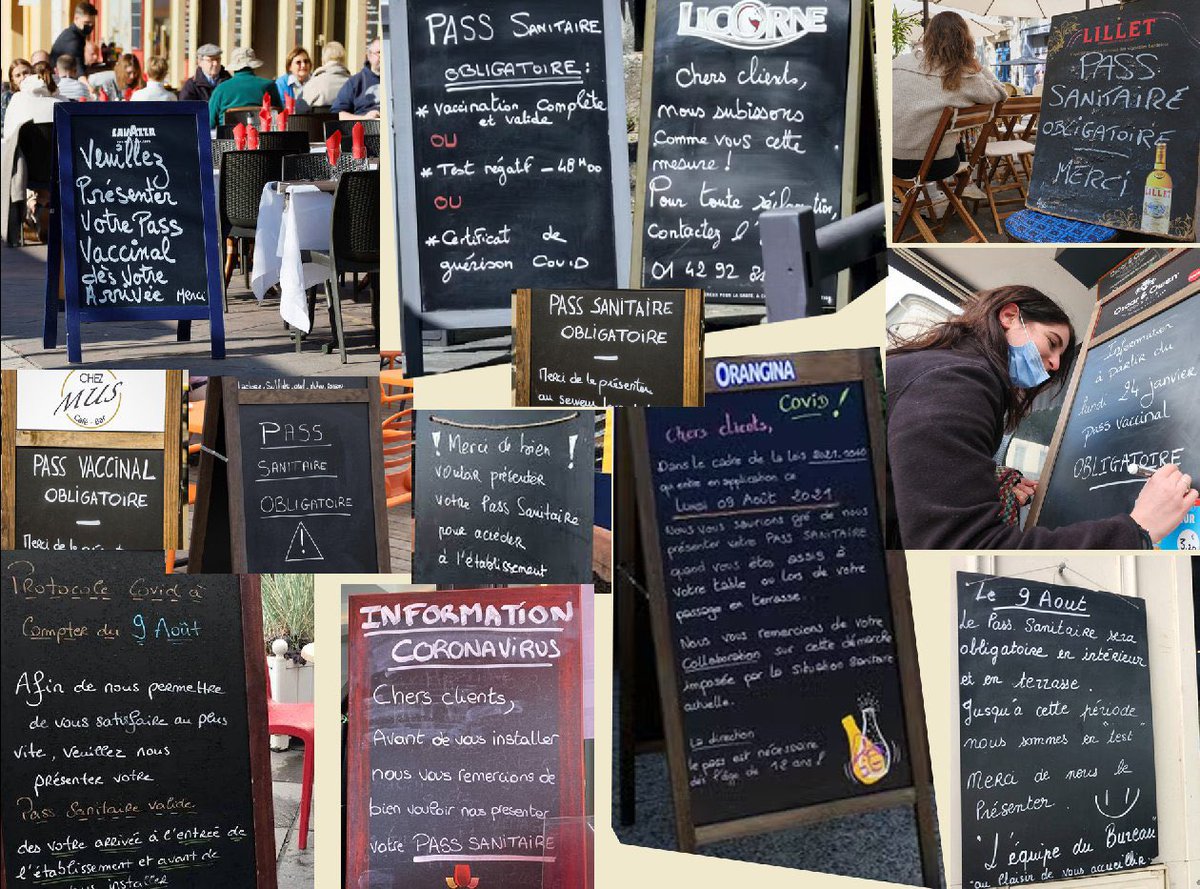 LAVAZZA
Veuillez
Présenter
Votre Pass
Vaccinal
dès Votre
Arrivée Merci
PASS SANITAIRE
OBLIGATOIRE :
* Vaccination Complète
et valide
OU
* Test négatif - 48H00
OU
* Certificat de
guérison Covid
LICORNE
Chers clients,
nous subissons
Comme vous cette
mesure !
Pour toute réclamation,
Contactez l'
01 42 92 8
LILLET
PASS
SANITAIRE
OBLIGATOIRE
MERCI
LILLET
PASS SANITAIRE
OBLIGATOIRE
Merci de le présenter
au serveur
Information
à partir du
lundi 24 janvier
pass vaccinal
OBLIGATOIRE
CHEZ
MUS
Café - Bar
PASS VACCINAL
OBLIGATOIRE
Merci de le présenter
PASS
SANITAIRE
OBLIGATOIRE
!
! Merci de bien !
vouloir présenter
votre Pass Sanitaire
pour accéder
à l'établissement
ORANGINA
COVID !
Chers clients,
Dans le cadre de la lois 2021.1040
qui entre en application ce
Lundi 09 Août 2021
Nous vous saurions gré de nous
présenter votre PASS SANITAIRE
quand vous êtes assis à
votre table ou lors de votre
passage en terrasse.
Nous vous remercions de votre
Collaboration sur cette démarche
imposée par la situation sanitaire
actuelle.
La direction
le pass est nécessaire
dès l'âge de 18 ans !
Protocole Covid à
Compter du 9 Août
Afin de nous permettre
de vous satisfaire au plus
vite, veuillez nous
présenter votre
Pass Sanitaire valide
des votre arrivée à l'entrée de
l'établissement et avant de
vous installer
INFORMATION
CORONAVIRUS
Chers clients,
Avant de vous installer
nous vous remercions de
bien vouloir nous presenter
votre PASS SANITAIRE
Le 9 Aout
Le Pass Sanitaire sera
obligatoire en intérieur
et en terrasse.
Jusqu'à cette période
nous sommes en "test"
Merci de nous le
Présenter.
"L'équipe du Bureau"
au Plaisir de vous accueillir